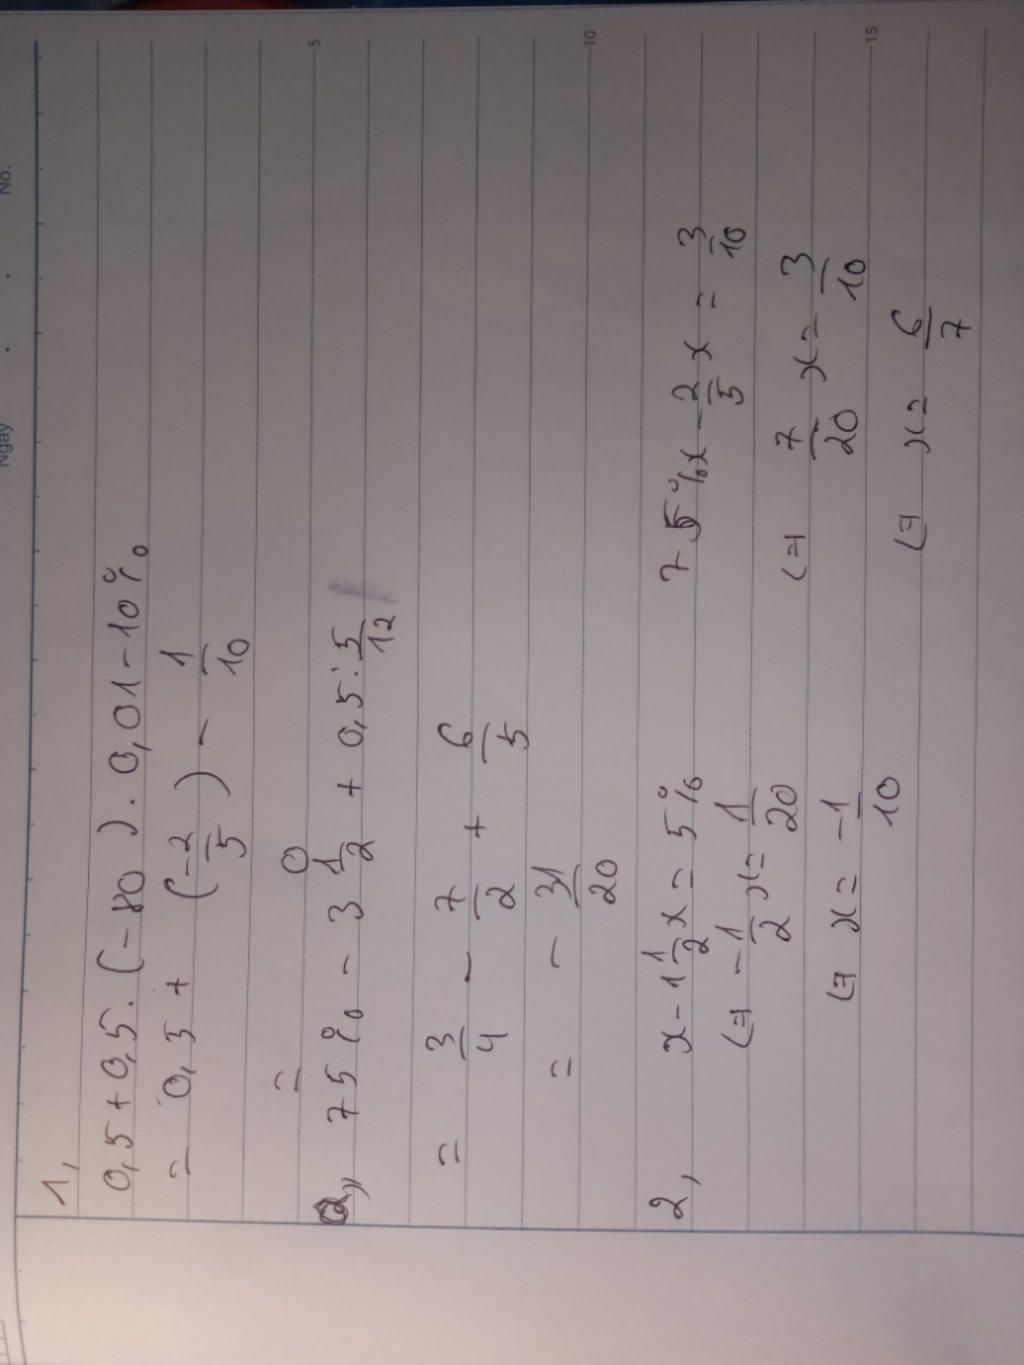 Ngày . . No.
1,
0,5 + 0,5 . (-80) . 0,01 - 10%
= 0,5 + (-2/5) - 1/10
= 0
a, 75% - 3 1/2 + 0,5 : 5/12
= 3/4 - 7/2 + 6/5
= - 31/20
2, x - 1 1/2 x = 5%
(= - 1/2 x = 1/20
(= x = -1/10
75%x - 2/5 x = 3/10
(= 7/20 x = 3/10
(= x = 6/7
5
10
15